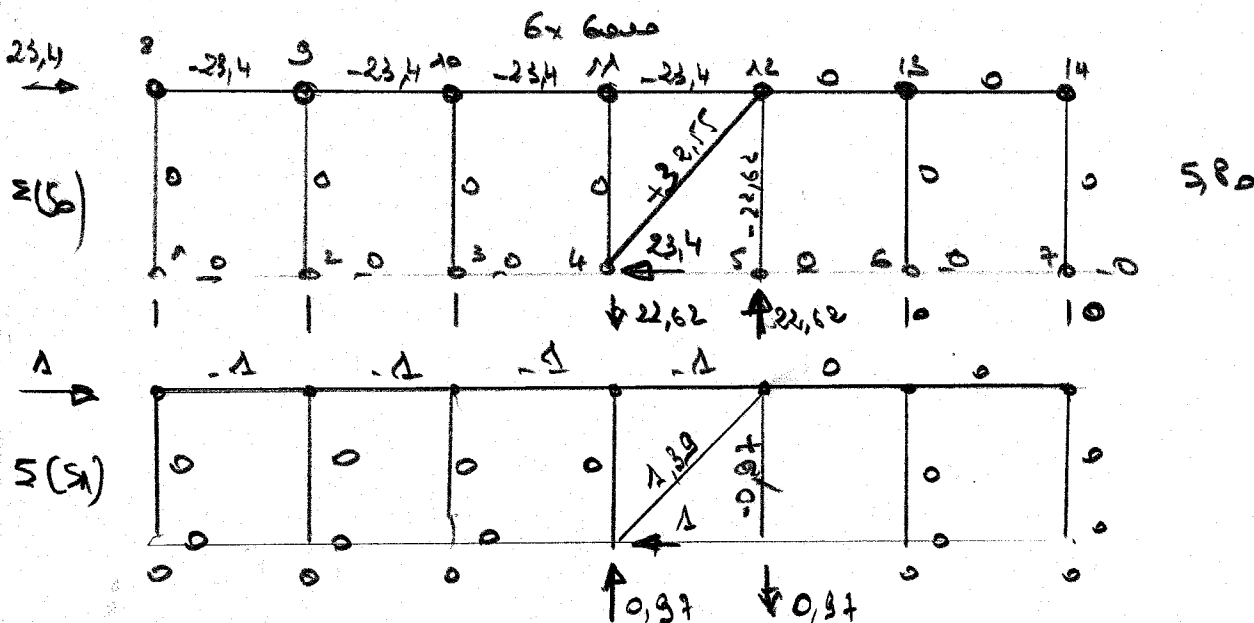 6x
23,4
8 -23,4 9 -23,4 10 -23,4 11 -23,4 12 0 13 0 14
0 0 0 0 +32,55 -22,62 0 0 5,80
1 0 2 -0 3 -0 4 23,4 5 0 6 -0 7 -0
22,62 22,62 0 0
1 -1 -1 -1 -1 0 0
0 0 0 0 1,39 -0,97 0 0
0 0 0 1 0 0
0 0 0 0,97 0,97 0 0